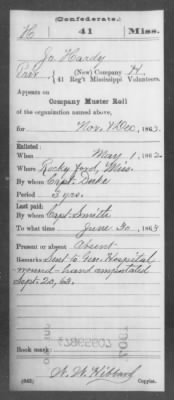 (Confederate.)
H 41 Miss.
Ja Hardy
Priv (New) Company H
41 Reg't Mississippi Volunteers.
Appears on
Company Muster Roll
of the organization named above,
for Nov & Dec, 1863.
Enlisted:
When May 1, 1862.
Where Rocky Ford, Miss.
By whom Capt. Duke
Period 3 yrs.
Last paid:
By whom Capt. Smith
To what time June 30, 1863
Present or absent Absent
Remarks Sent to Gen. Hospital
wound - hand amputated
Sept. 20, 63.
Book mark:
(642) Copyist.